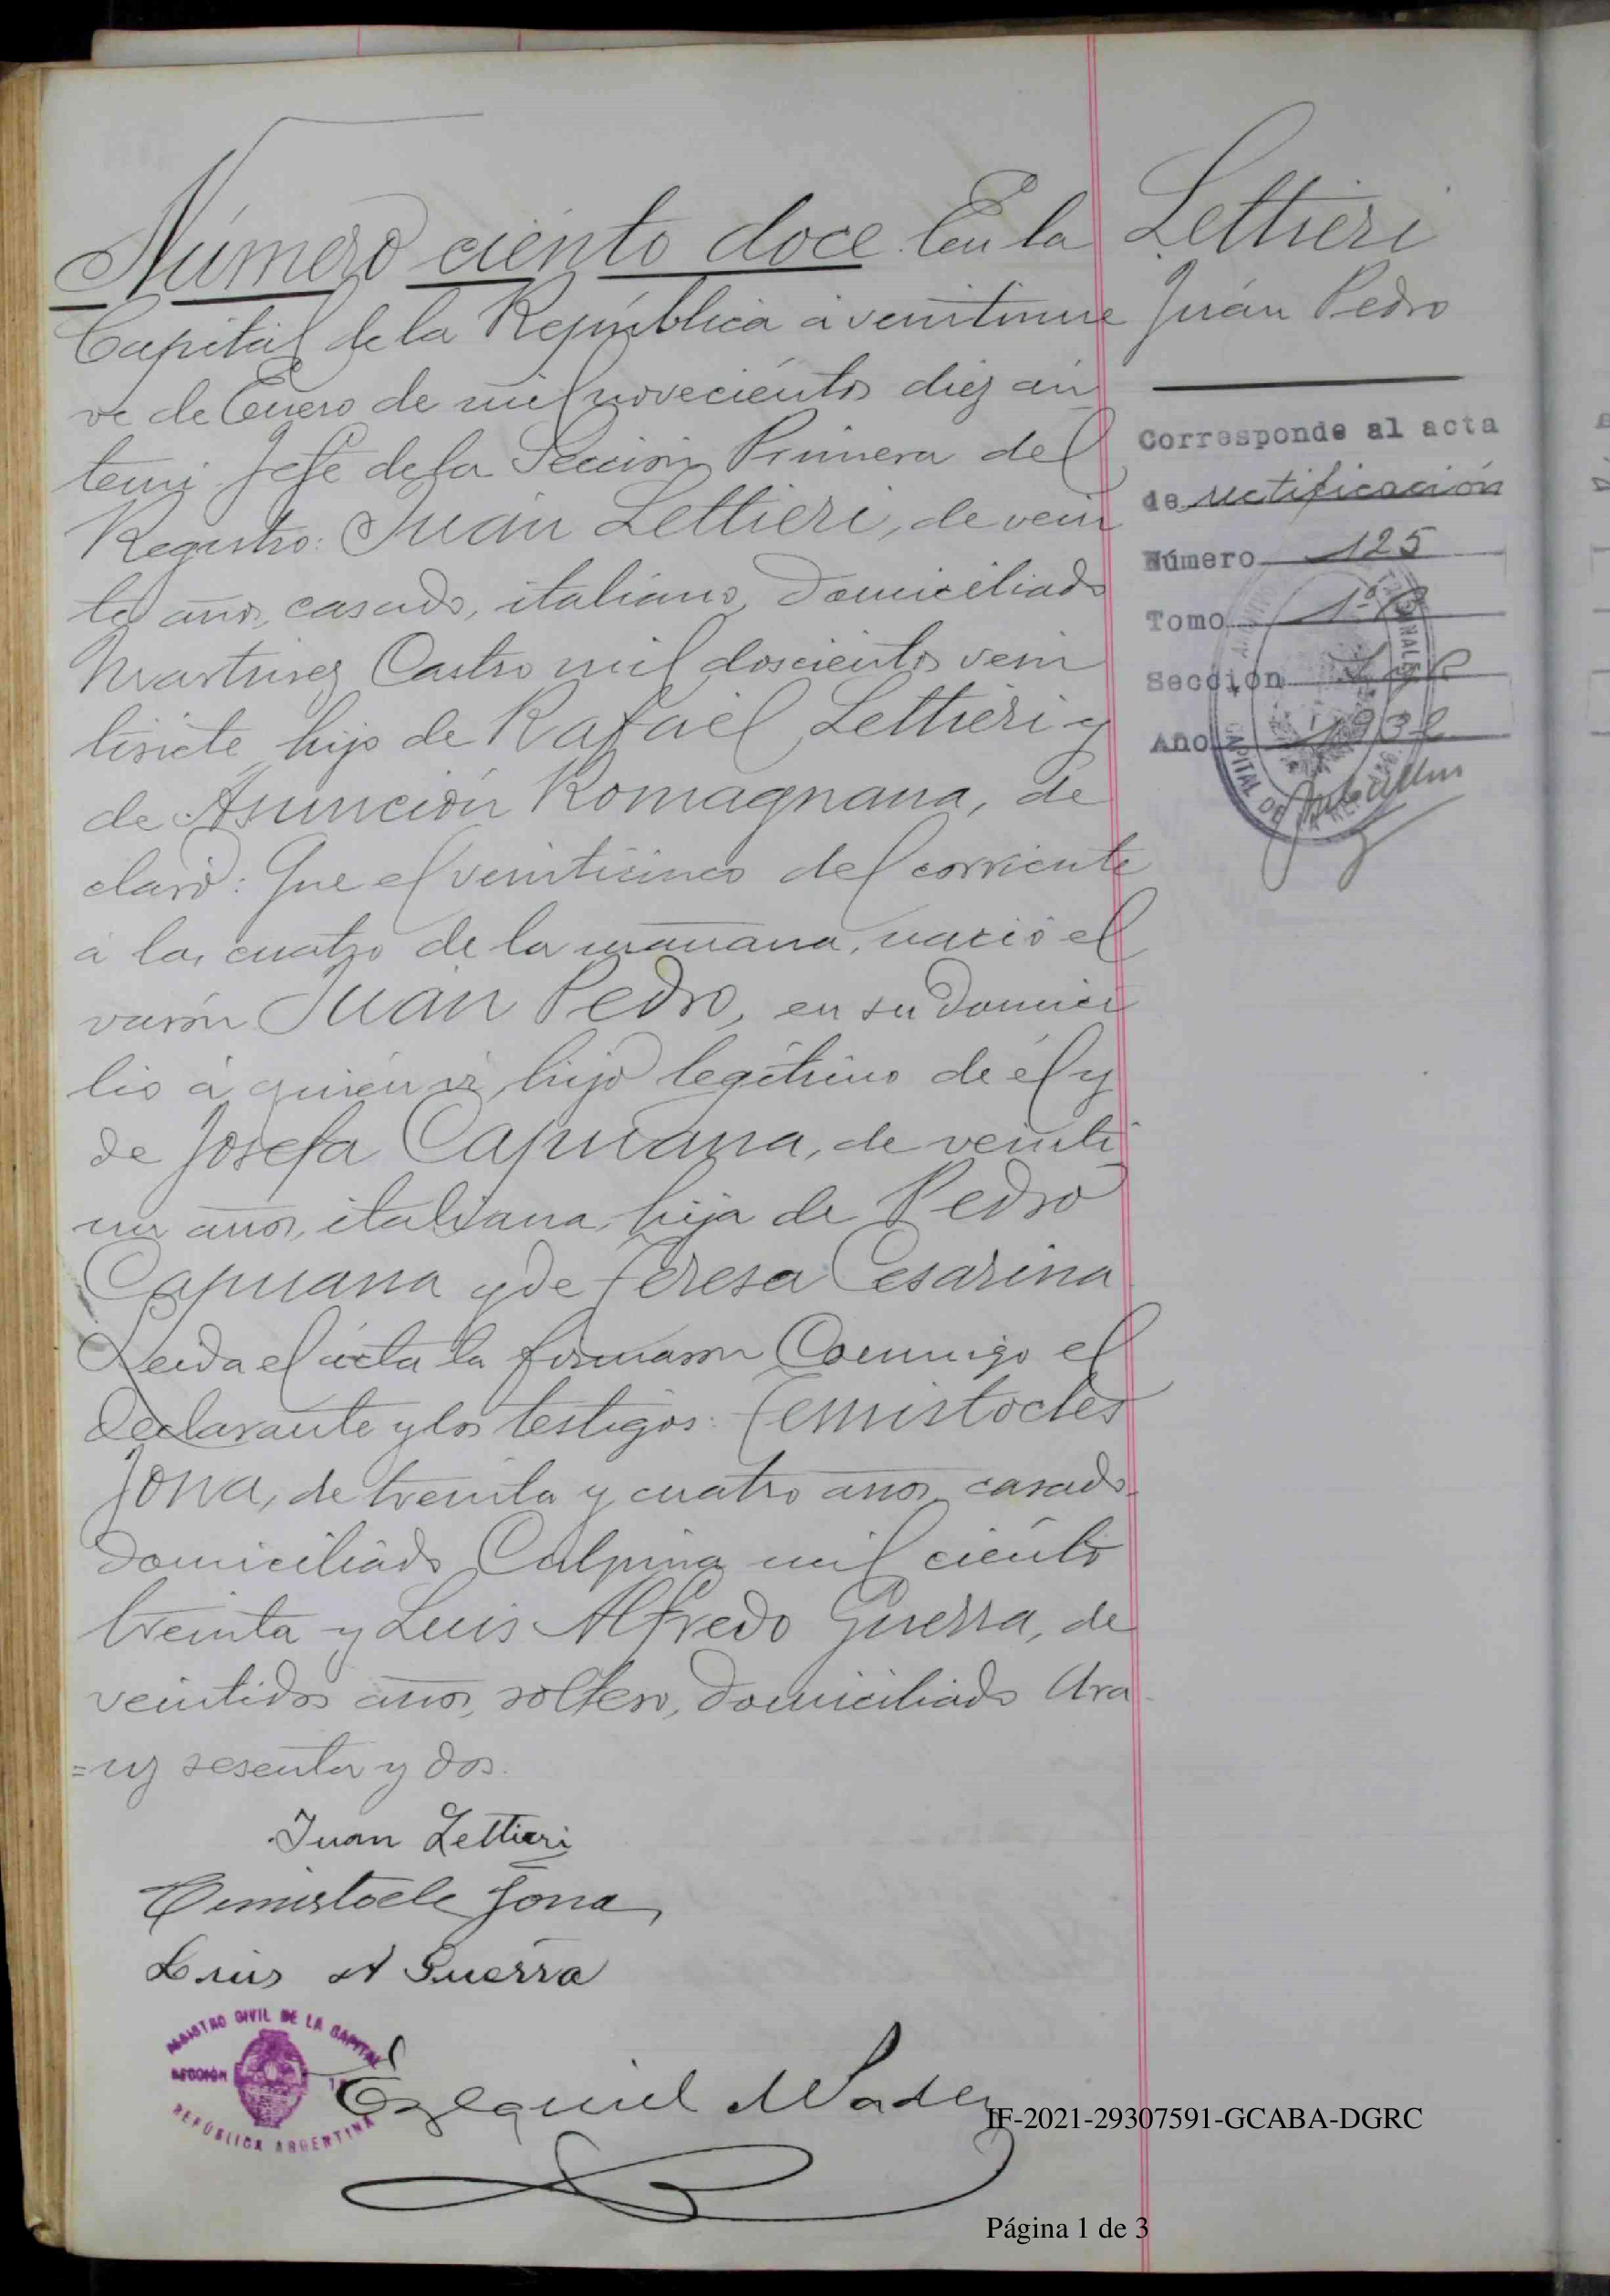 Número ciento doce. En la
Capital de la República á veintinue
ve de Enero de mil novecientos diez an
te mi Jefe de la Sección Primera del
Registro: Juan Lettieri, de vein
te años, casado, italiano, domiciliado
Martinez Castro mil doscientos vein
tisiete, hijo de Rafael Lettieri y
de Asunción Romagnana, de
claró: Que el veinticinco del corriente
á las cuatro de la mañana, nació el
varón Juan Pedro, en su domici
lio á quien ví, hijo legítimo de él y
de Josefa Capuana, de veinti
un años, italiana, hija de Pedro
Capuana y de Teresa Cesarina
Leida el acta la firmaron Conmigo el
declarante y los testigos: Temistocles
Jona, de treinta y cuatro años, casado
domiciliado Culpina mil ciento
treinta y Luis Alfredo Guerra, de
veintidos años, soltero, domiciliado Ara
=uz sesenta y dos.
Juan Lettieri
Temistocle Jona
Luis A Guerra
REGISTRO CIVIL DE LA CAPITAL
SECCIÓN 1ª
REPÚBLICA ARGENTINA
Ezequiel
Lettieri
Juan Pedro
Corresponde al acta
de rectificación
Número 125
Tomo 1º
Sección
Año 1932
CAPITAL DE LA
IF-2021-29307591-GCABA-DGRC
Página 1 de 3